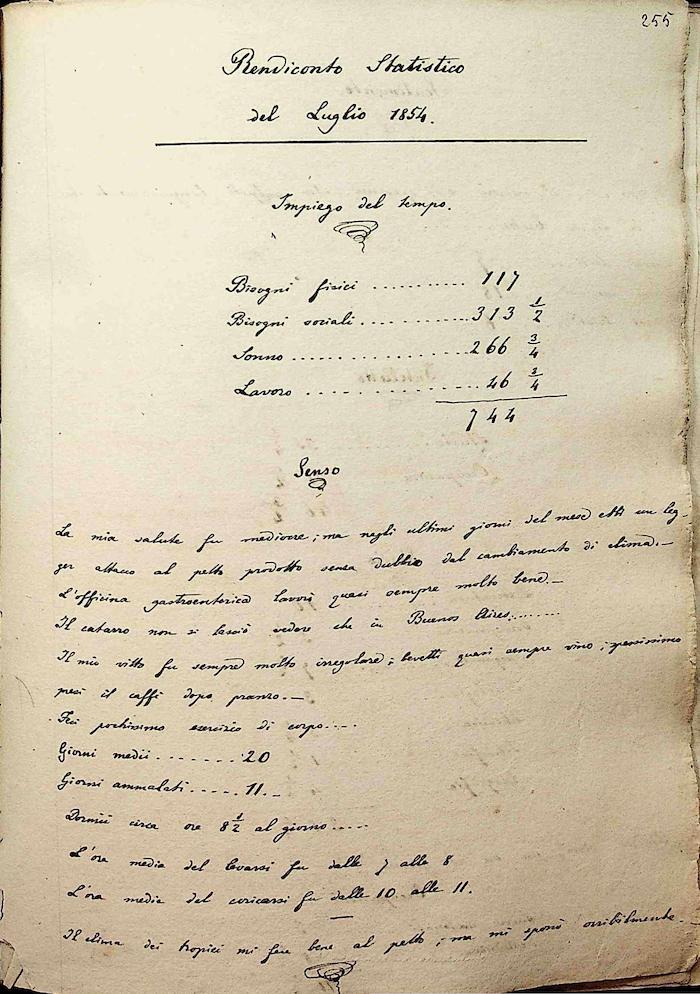 255
Rendiconto Statistico
del Luglio 1854.
Impiego del tempo.
Bisogni fisici .......... 117
Bisogni sociali ........... 313 1/2
Sonno ................. 266 3/4
Lavoro ............... 46 3/4
744
Senso
La mia salute fu mediocre; ma negli ultimi giorni del mese ebbi un leg-
ger attacco al petto prodotto senza dubbio dal cambiamento di clima.—
L'officina gastroenterica lavorò quasi sempre molto bene.—
Il catarro non si lasciò vedere che in Buenos Aires.......
Il mio vitto fu sempre molto irregolare; bevetti quasi sempre vino; spessissimo
presi il caffè dopo pranzo.—
Feci pochissimo esercizio di corpo....
Giorni medii ....... 20
Giorni ammalati ..... 11.—
Dormii circa ore 8 1/2 al giorno.....
L'ora media del levarsi fu dalle 7 alle 8
L'ora media del coricarsi fu dalle 10 alle 11.
Il clima dei tropici mi fece bene al petto; ma mi spossò orribilmente.